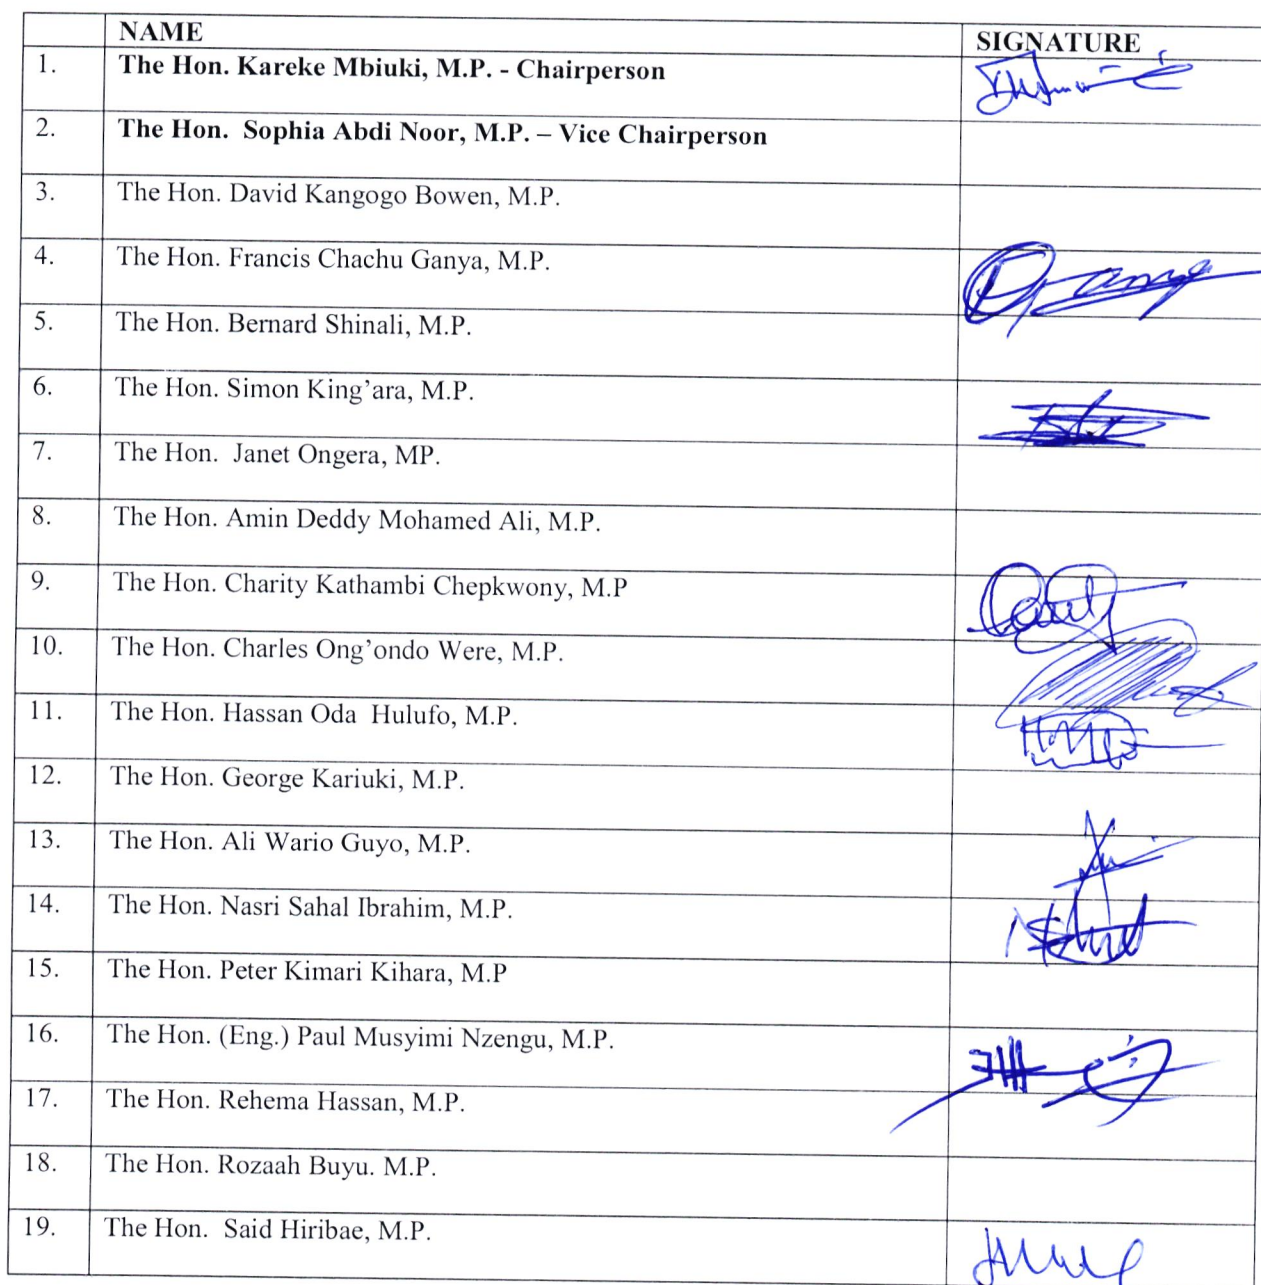 NAME SIGNATURE
1. The Hon. Kareke Mbiuki, M.P. - Chairperson
2. The Hon.  Sophia Abdi Noor, M.P. – Vice Chairperson
3. The Hon. David Kangogo Bowen, M.P.
4. The Hon. Francis Chachu Ganya, M.P.
5. The Hon. Bernard Shinali, M.P.
6. The Hon. Simon King’ara, M.P.
7. The Hon.  Janet Ongera, MP.
8. The Hon. Amin Deddy Mohamed Ali, M.P.
9. The Hon. Charity Kathambi Chepkwony, M.P
10. The Hon. Charles Ong’ondo Were, M.P.
11. The Hon. Hassan Oda  Hulufo, M.P.
12. The Hon. George Kariuki, M.P.
13. The Hon. Ali Wario Guyo, M.P.
14. The Hon. Nasri Sahal Ibrahim, M.P.
15. The Hon. Peter Kimari Kihara, M.P
16. The Hon. (Eng.) Paul Musyimi Nzengu, M.P.
17. The Hon. Rehema Hassan, M.P.
18. The Hon. Rozaah Buyu. M.P.
19. The Hon.  Said Hiribae, M.P.